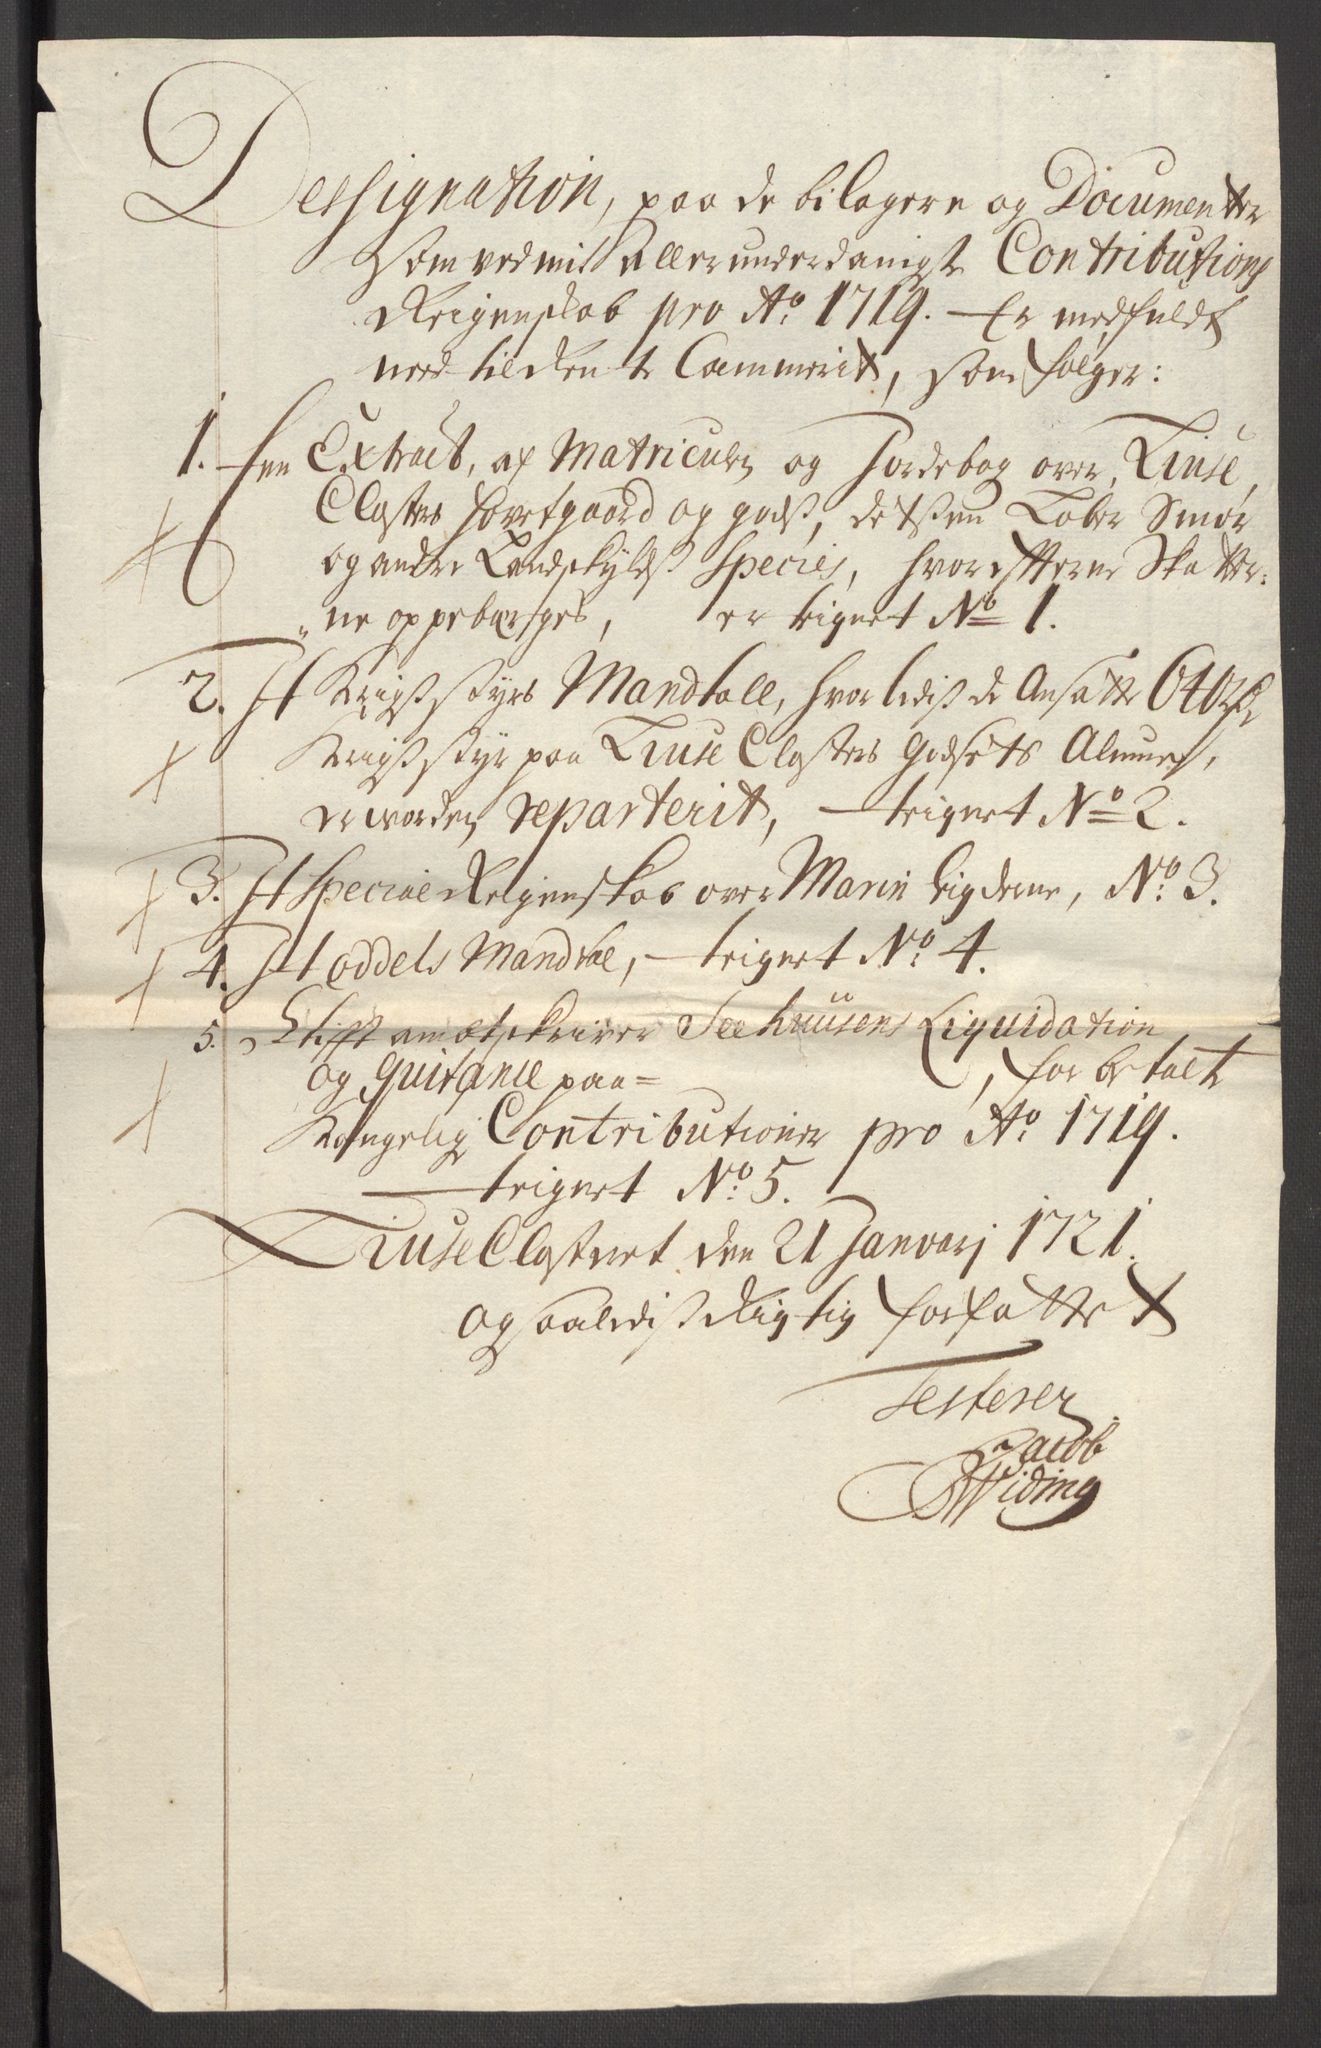 Dessignation, paa de bilagern og Documenter
Som ved mit Allerunderdanigste Contributions
Reigenskab pro Ao. 1719. Er medfuldt
need til Rente Cammerit, som følger:
1. Een Extract, af Matriculn og Jordebog over, Liuse
Closters Hovetgaard og gods, detssen Løber Smør
og andre Landskylds Species, hvorefter Skatter:
"ne oppebærges, er teignet No 1.
2. It Krigsstyrs Mandtall, hvorledis de Ansatte 640
Krigsstyr paa Liuse Closters Godsets Almue,
er worden reparterit, teignet No 2.
3. It Special Reigenskab over Marin No. 3.
4. It oddels Mandtal, teignet No. 4.
5. Stifft ambtskriver Seehuusens Liquidation
og Quitance paa= , for betalte
Kongelig Contributioner pro Ao. 1719.
teignet No. 5.
Liuse Closteret den 21 Janvarj 1721.
og saaledis Rigtig forfattet
Testerer
Jacob
Widing